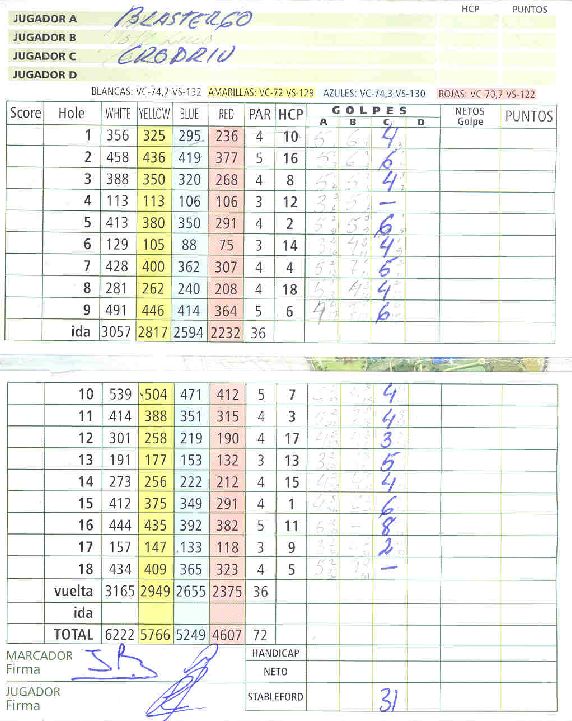 HCP PUNTOS
JUGADOR A BLASTERGO
JUGADOR B
JUGADOR C CRODRIU
JUGADOR D
BLANCAS: VC-74,7 VS-132 AMARILLAS: VC-72 VS-129 AZULES: VC-74,3 VS-130 ROJAS: VC-70,7 VS-122
Score Hole WHITE YELLOW BLUE RED PAR HCP GOLPES A B C D NETOS Golpe PUNTOS
1 356 325 295 236 4 10 5 6 4
2 458 436 419 377 5 16 5 6 6
3 388 350 320 268 4 8 4
4 113 113 106 106 3 12 –
5 413 380 350 291 4 2 6
6 129 105 88 75 3 14 4
7 428 400 362 307 4 4 5
8 281 262 240 208 4 18 4
9 491 446 414 364 5 6 4 6
ida 3057 2817 2594 2232 36
10 539 504 471 412 5 7 4
11 414 388 351 315 4 3 4
12 301 258 219 190 4 17 3
13 191 177 153 132 3 13 5
14 273 256 222 212 4 15 4
15 412 375 349 291 4 1 6
16 444 435 392 382 5 11 8
17 157 147 133 118 3 9 2
18 434 409 365 323 4 5 –
vuelta 3165 2949 2655 2375 36
ida
TOTAL 6222 5766 5249 4607 72
MARCADOR HANDICAP
Firma NETO
JUGADOR
Firma STABLEFORD 31